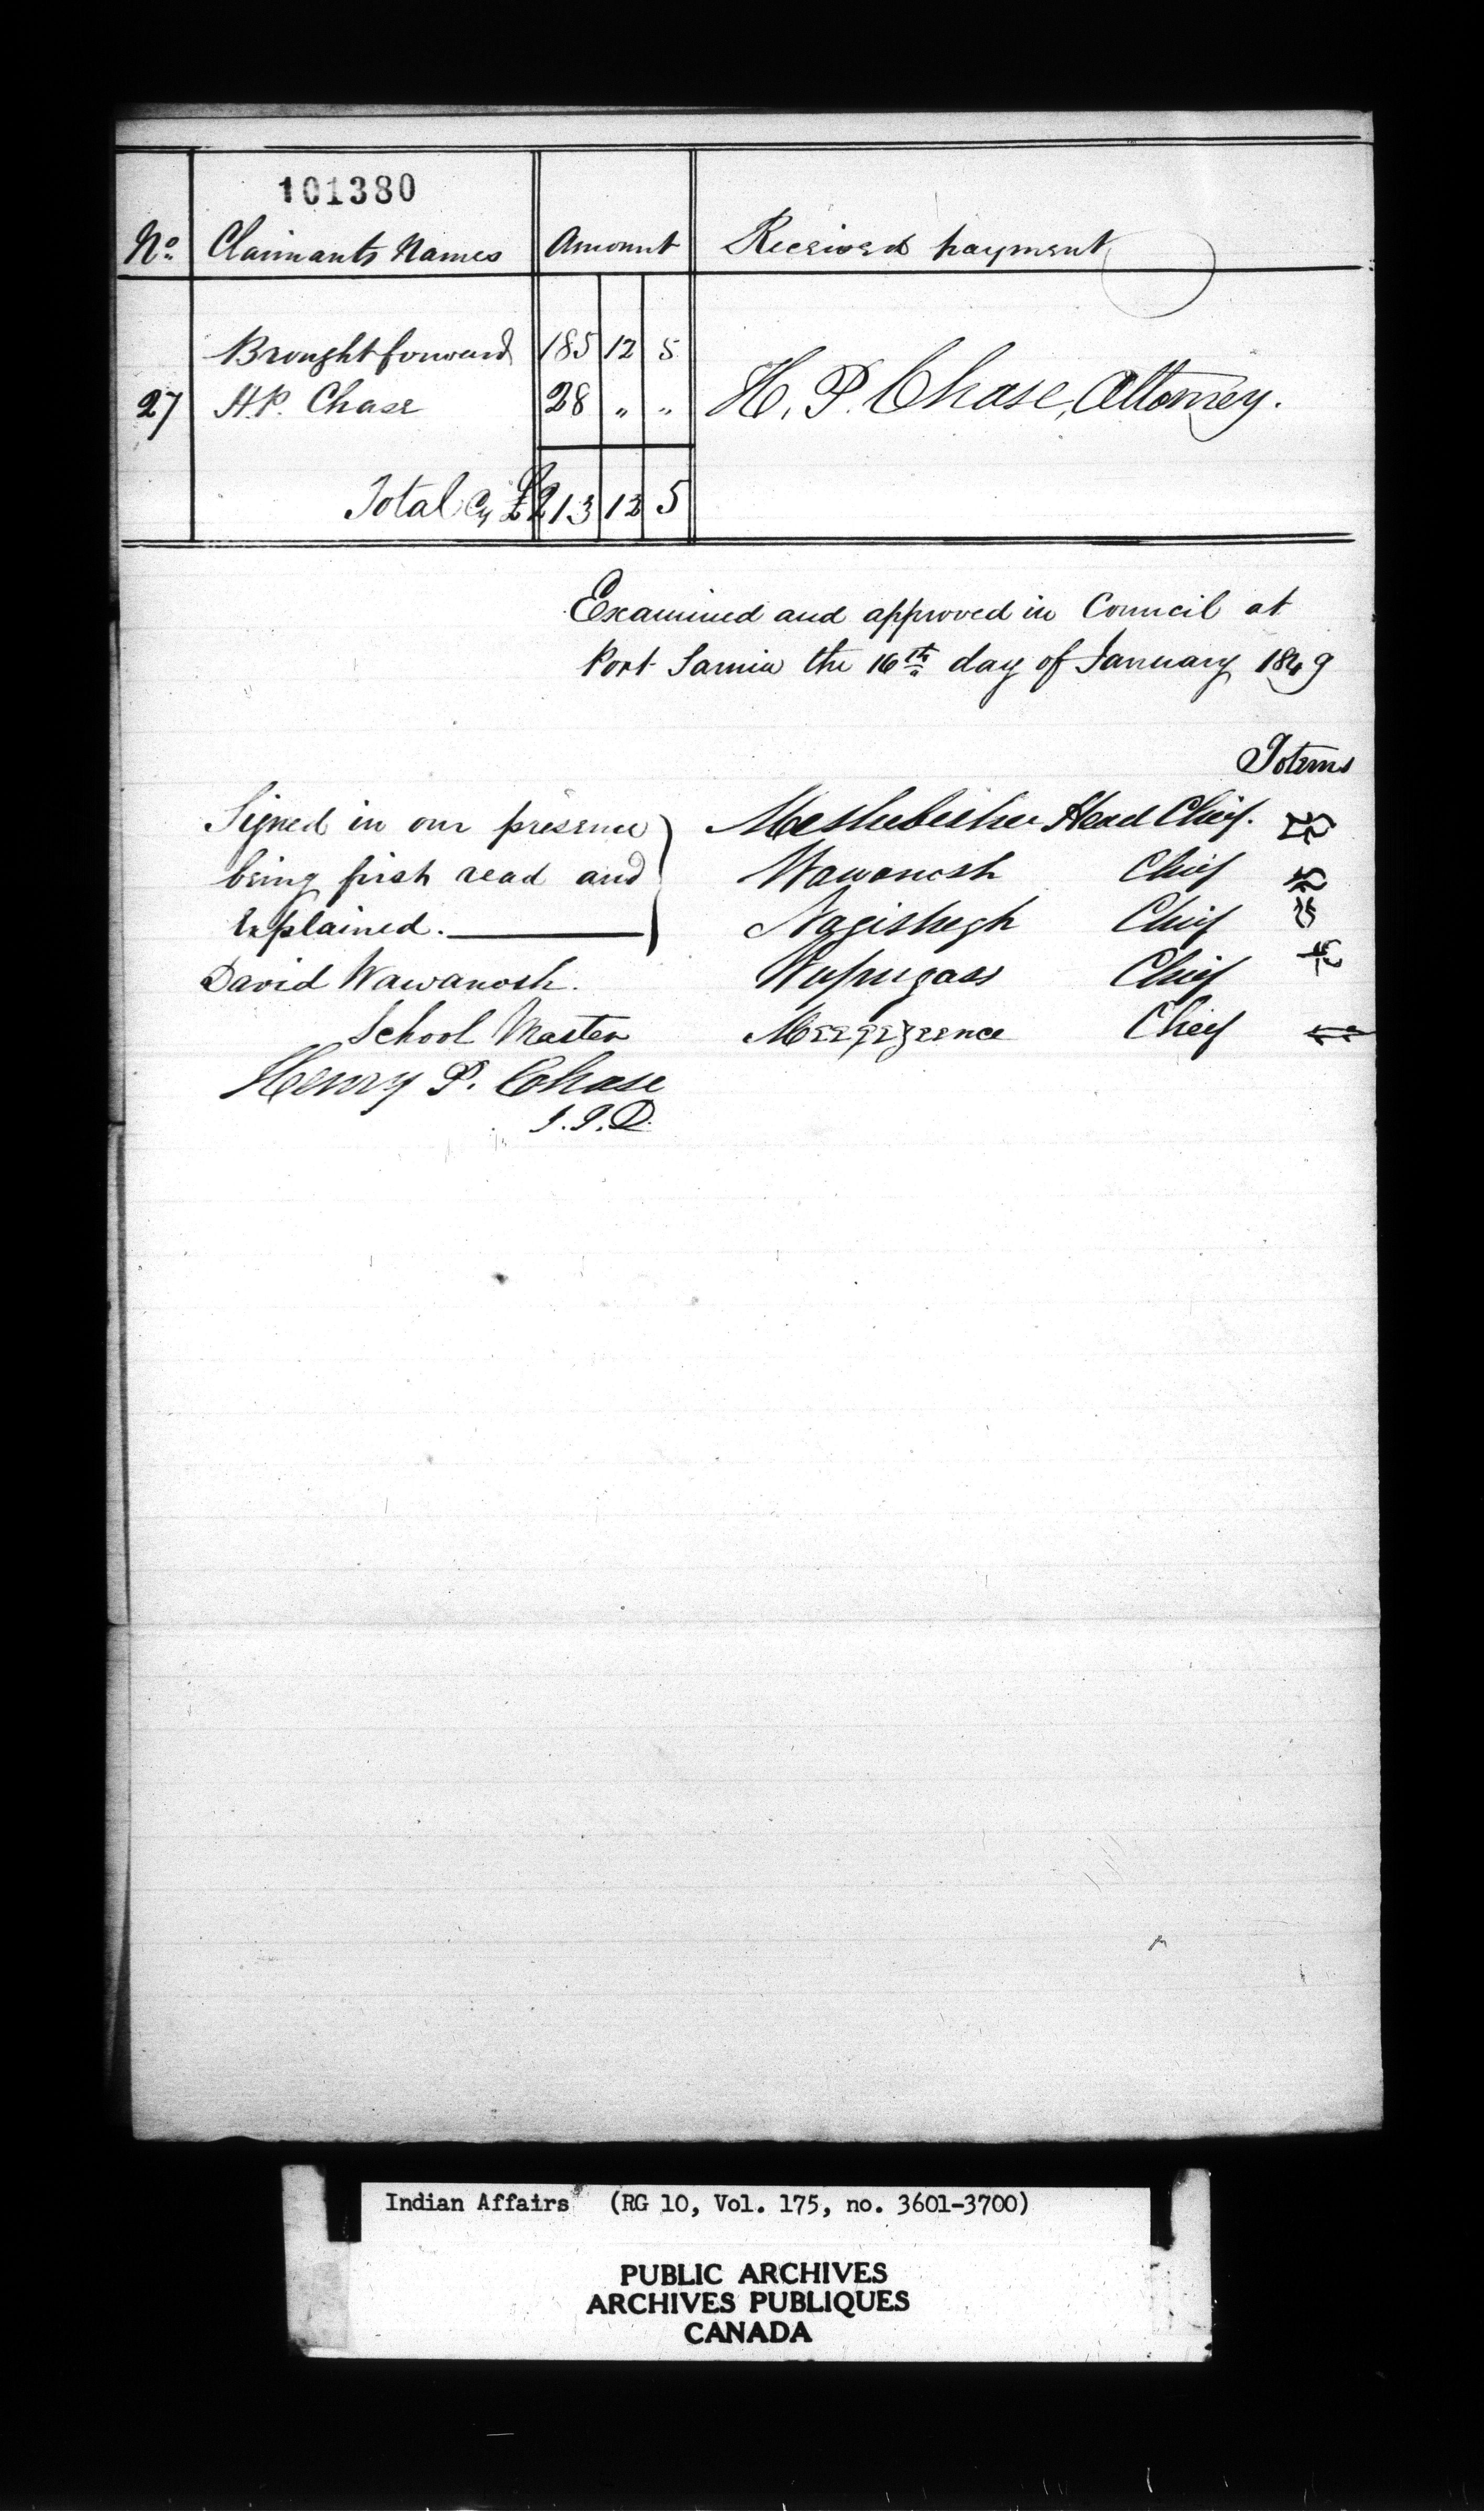 101380
No. Claimants Names Amount Received payment
Brought forward 185 12 5
27 H.P. Chase 28 " " H. P. Chase, Attorney.
Total Cy £213 12 5
Examined and approved in Council at
Port Sarnia the 16th day of January 1849
Totems
Signed in our presence
being first read and
Explained.
David Wawanosh.
School Master
Henry P. Chase
I.I.D.
Head Chief.
Wawanosh Chief
Nagishegh Chief
Wapugass Chief
Chief
Indian Affairs (RG 10, Vol. 175, no. 3601-3700)
PUBLIC ARCHIVES
ARCHIVES PUBLIQUES
CANADA